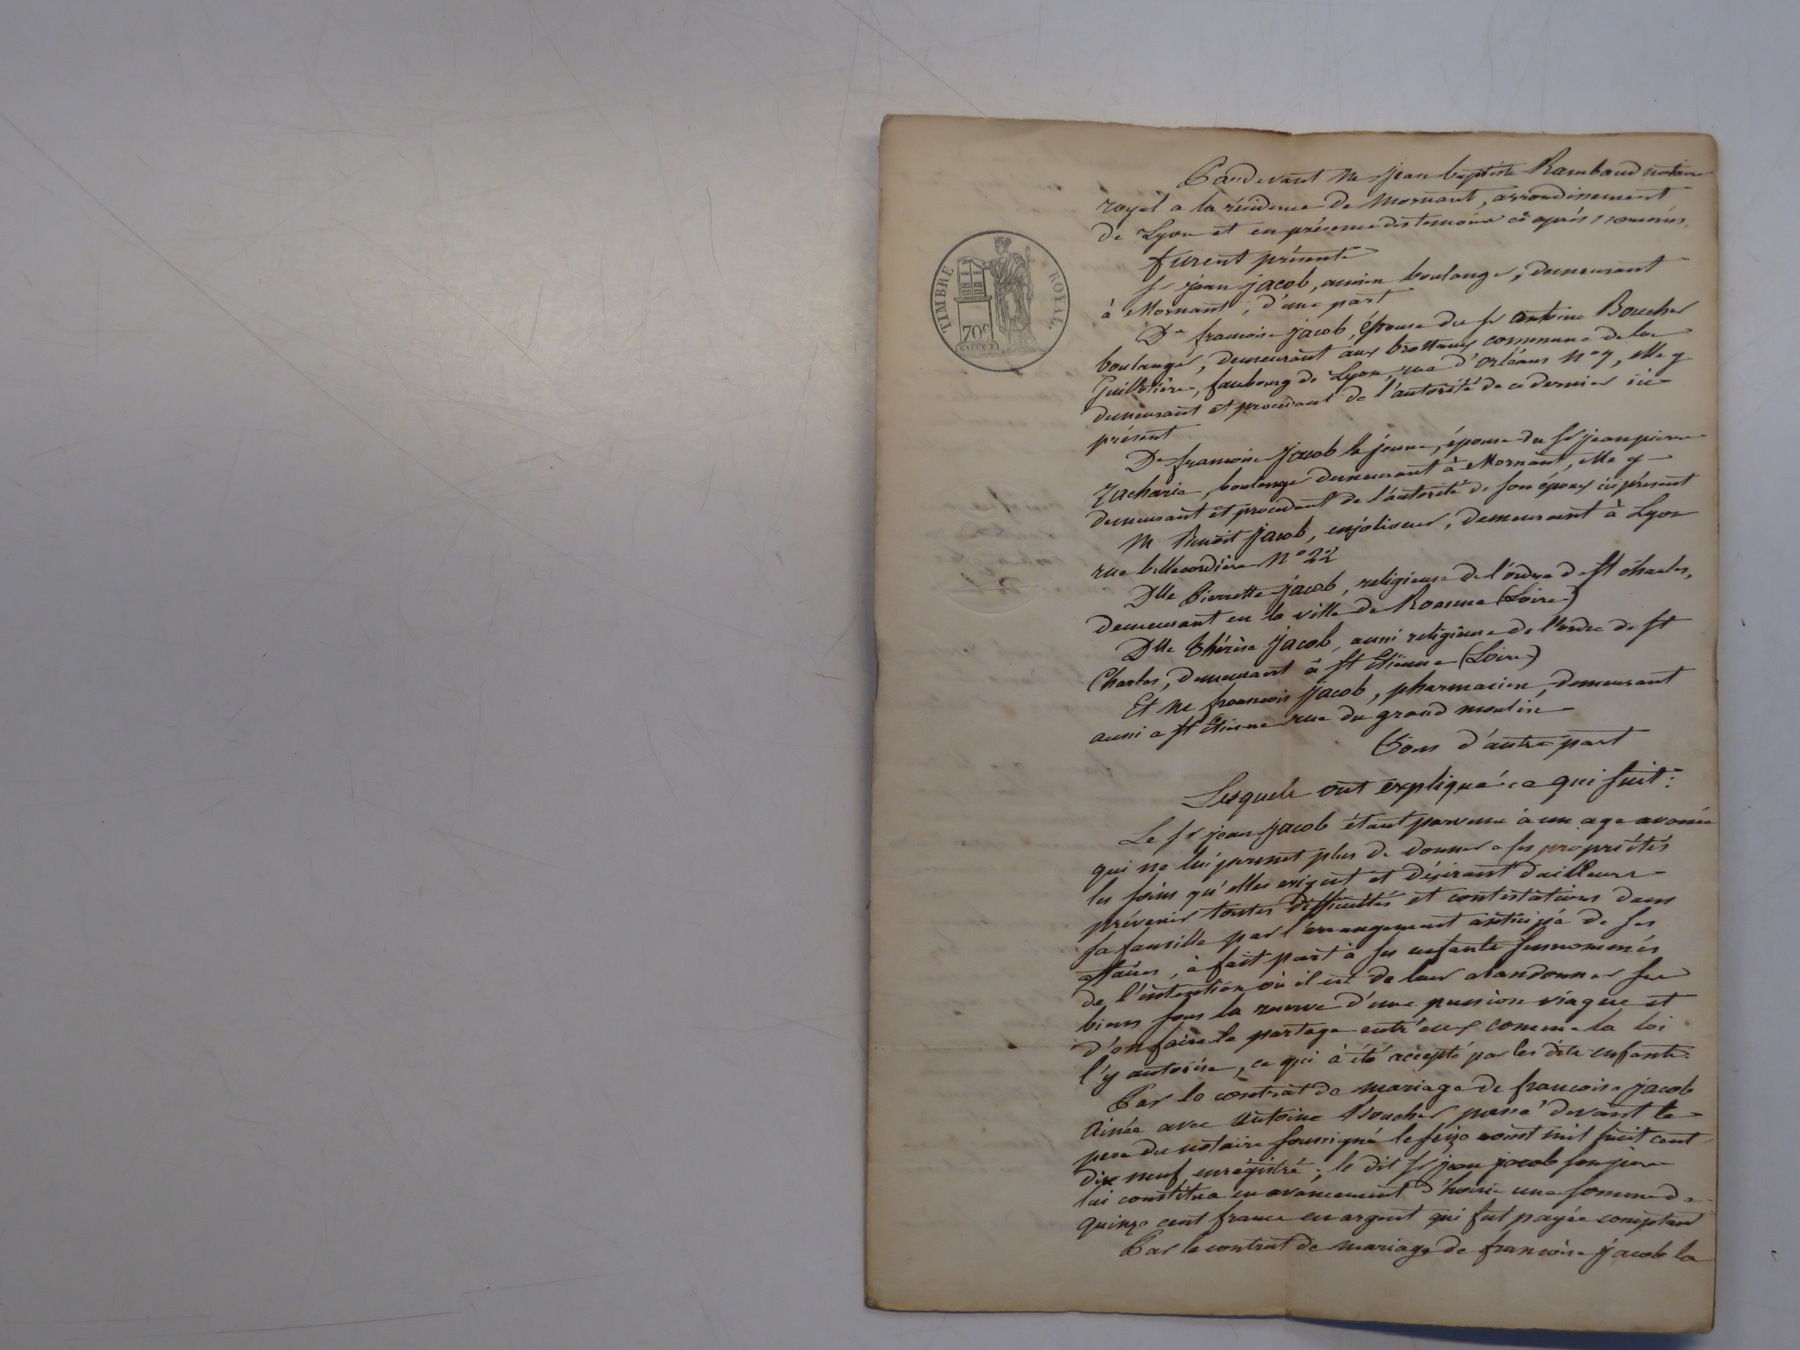 TIMBRE ROYAL
70c
Pardevant Me jean baptiste Rambaud notaire
royal a la résidence de Mornant, arrondissement
de Lyon et en présence des temoins ci après nommés
furent présents
sr jean jacob, ancien boulanger, demeurant
à Mornant, d'une part
De francoise jacob, épouse du sr antoine Boucher
boulanger, demeurant aux brottaux commune de la
Guillotière, faubourg de Lyon, rue d'orléans no 7, elle y
demeurant et procédant de l'autorité de ce dernier ici
présent
De francoise jacob la jeune, épouse du sr jean pierre
Zacharie, boulanger demeurant à Mornant, elle y
demeurant et procédant de l'autorité de son époux ici présent
Mr Benoit jacob, enjoliveur, demeurant à Lyon
rue bellecordière No 22
Dlle Pierrette jacob, religieuse de l'ordre de st charles,
demeurant en la ville de Roanne (Loire)
Dlle thérèse jacob, aussi religieuse de l'ordre de st
Charles, demeurant à st Etienne (Loire)
Et Mr francois jacob, pharmacien, demeurant
aussi a st Etienne rue du grand moulin
Tous d'autre part
Lesquels ont expliqué ce qui suit:
Le sr jean jacob étant parvenu à un age avancé
qui ne lui permet plus de donner a ses propriétés
les soins qu'elles exigent et désirant d'ailleurs
prévenir toutes difficultés et contestations dans
sa famille par l'arrangement anticipé de ses
affaires, à fait part à ses enfants susnommés
de l'intention où il est de leur abandonner ses
biens sous la reserve d'une pension viagère et
d'en faire le partage entr'eux comme la loi
l'y autorise, ce qui à été accepté par les dits enfants.
Par le contrat de mariage de francoise jacob
ainée avec Antoine Boucher passé devant le
pere du notaire soussigné le seize aoust mil huit cent
dix neuf enregistré; le dit sr jean jacob son pere
lui constitua en avancement d'hoirie une somme de
quinze cent francs en argent qui fut payée comptant
Par le contrat de mariage de francoise jacob la